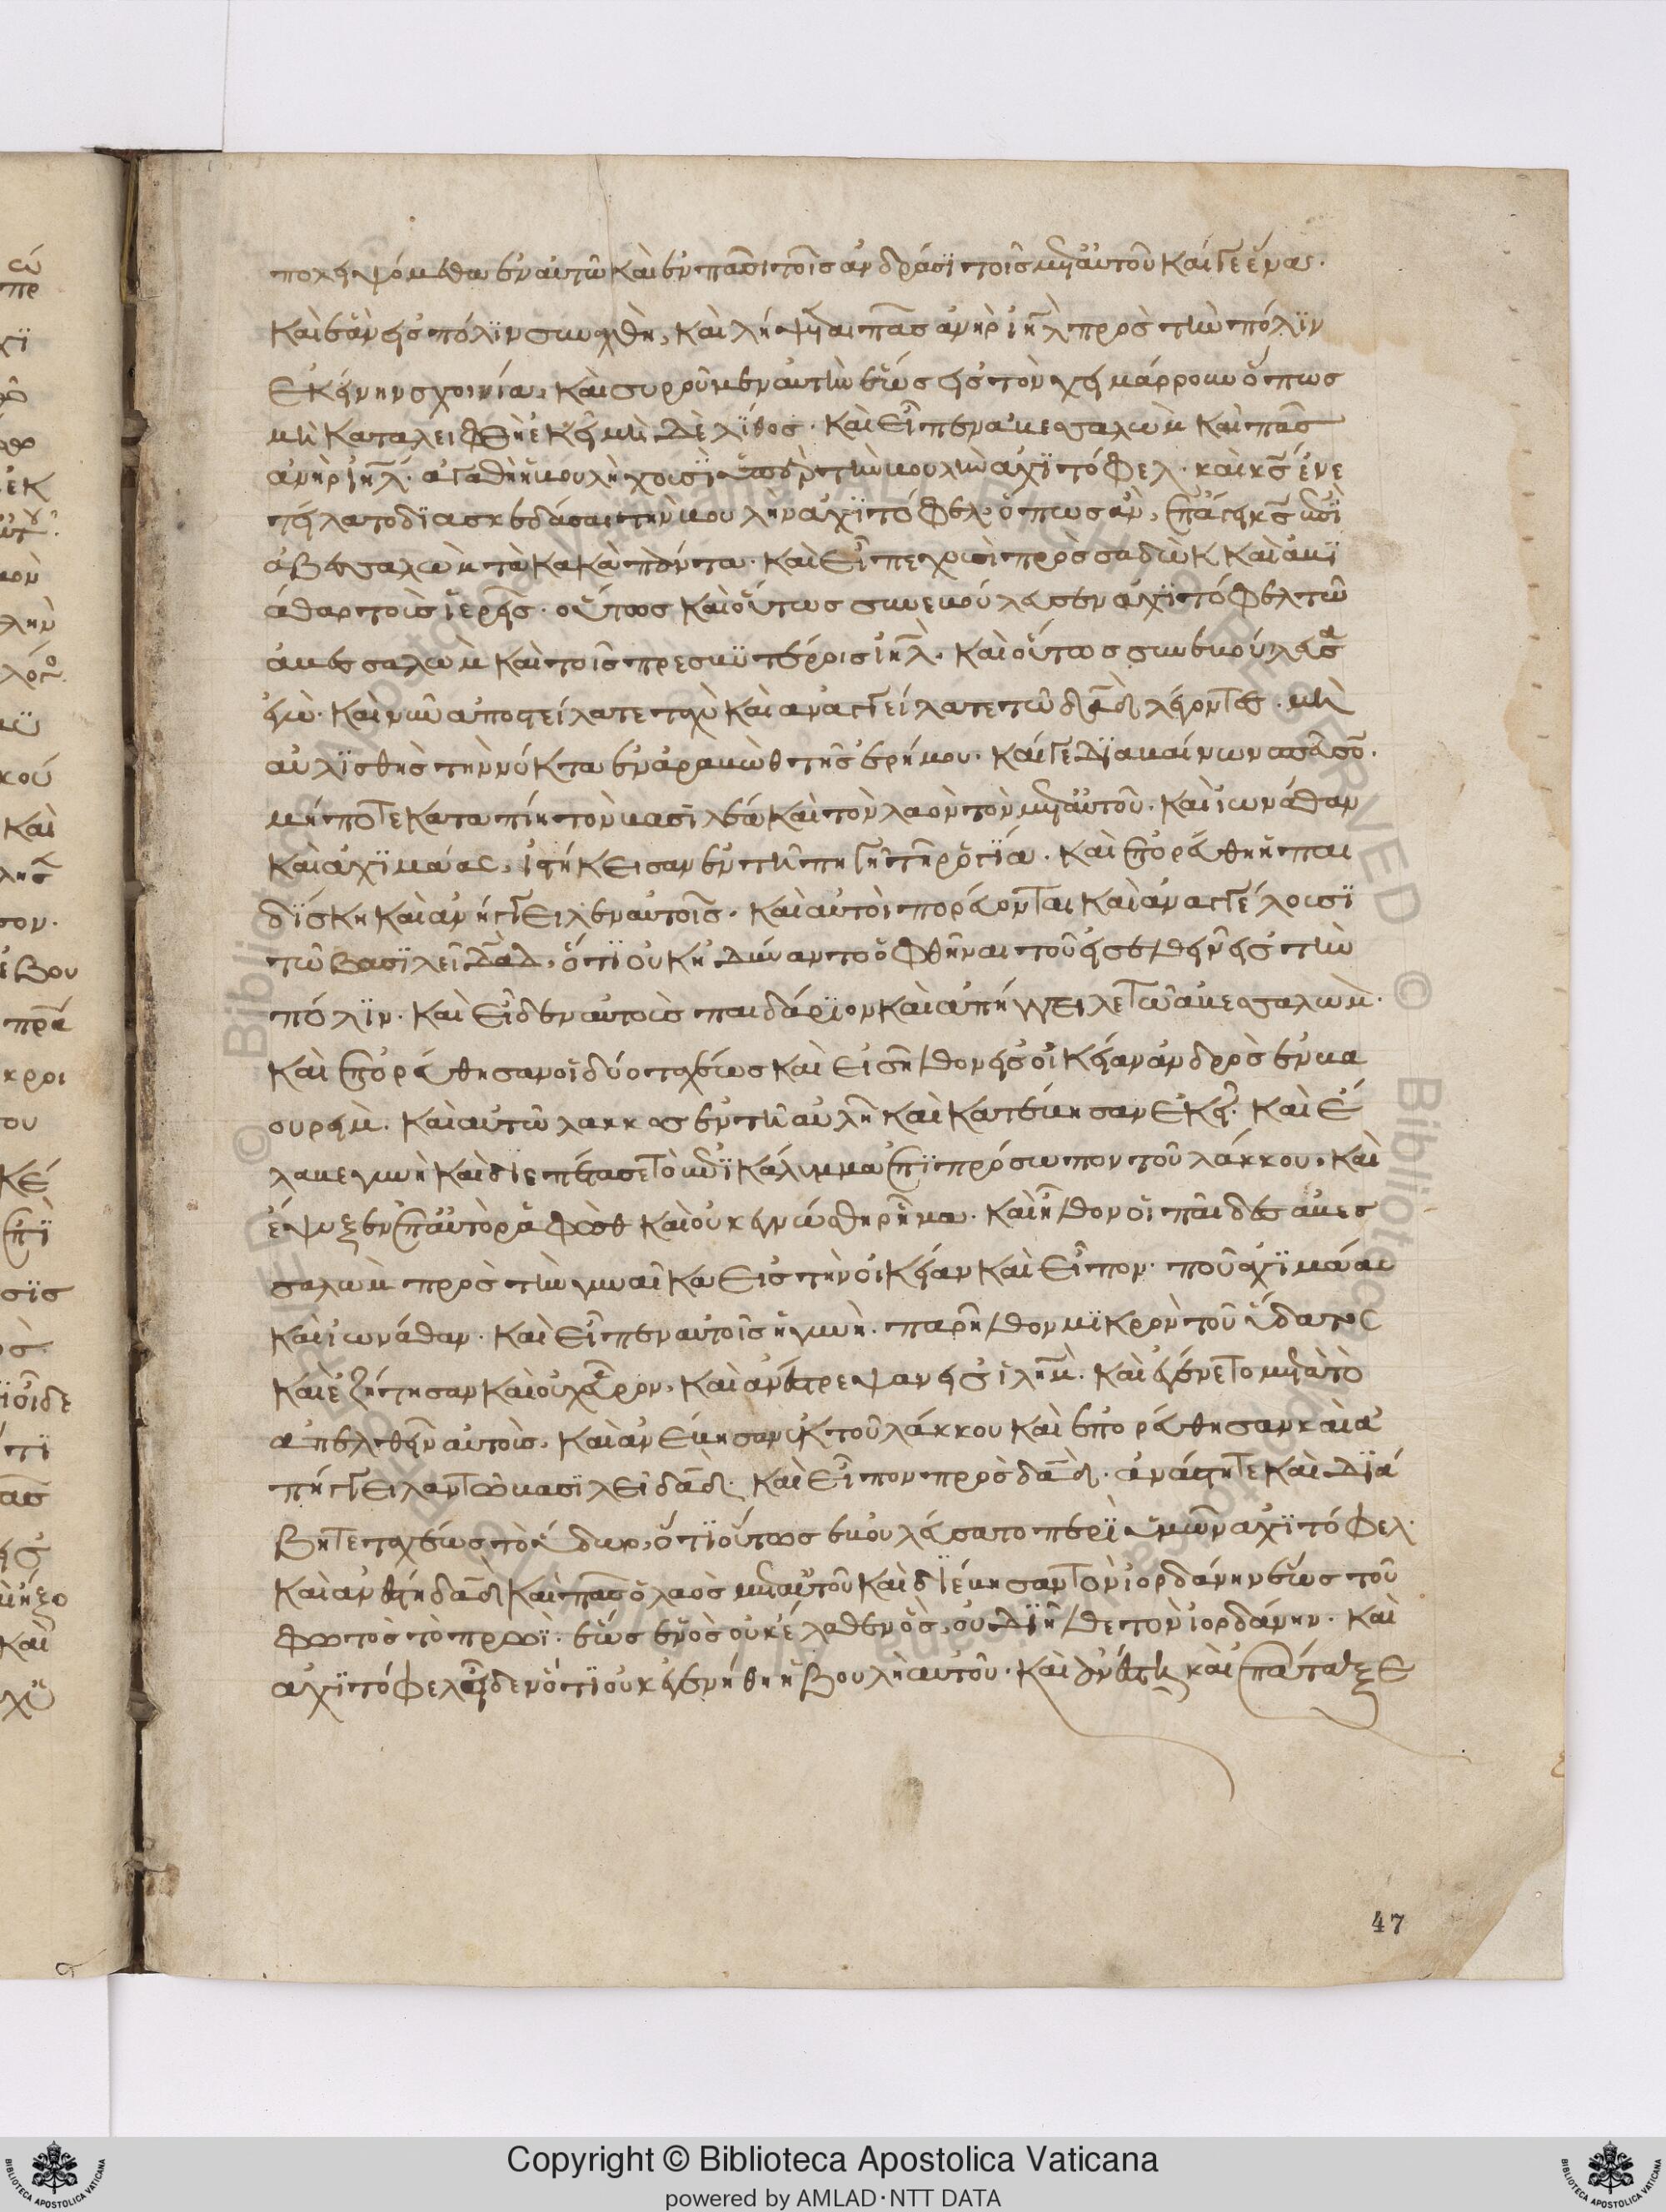 πολειψόμεθα ἐν αὐτῶ καὶ ἐν πᾶσι τοῖς ἀνδράσι τοῖς μετ αὐτοῦ καί γε ἕνα.
καὶ ἐὰν εἰς πόλιν συναχθῆ, καὶ λήψεται πᾶς ἀνὴρ ιηλ πρὸς τὴν πόλιν
ἐκείνην σχοινία, καὶ συροῦμεν αὐτὴν ἕως εἰς τὸν χειμάρρουν ὅπως
μὴ καταλειφθῆ ἐκεῖ μὴ δὲ λίθος. καὶ εἶπεν ἀβεσαλὼμ καὶ πᾶς
ἀνὴρ ιηλ. ἀγαθὴ ἡ βουλὴ χουσὶ ὑπὲρ τὴν βουλὴν ἀχιτόφελ. καὶ κς ἐνε
τείλατο διασκεδάσαι τὴν βουλὴν ἀχιτόφελ, ὅπως ἂν ἐπάξει κς ἐπὶ
ἀβεσαλὼμ τὰ κακὰ πάντα. καὶ εἶπε χουσὶ πρὸς σαδὼκ καὶ ἀβι
άθαρ τοὺς ἱερεῖς. οὕτως καὶ οὕτως συνεβούλευσεν ἀχιτόφελ τῶ
ἀβεσσαλὼμ καὶ τοῖς πρεσβυτέροις ιηλ. καὶ οὕτως συνεβούλευσα
ἐγώ. καὶ νῦν ἀποστείλατε ταχὺ καὶ ἀναγγείλατε τῶ δαδ λέγοντες. μὴ
αὐλισθῆς τὴν νύκτα ἐν ἀραβὼθ τῆς ἐρήμου. καί γε διαβαίνων σπεῦσον.
μήποτε καταπίη τὸν βασιλέα καὶ τὸν λαὸν τὸν μετ αὐτοῦ. καὶ ἰωνάθαν
καὶ ἀχιμάας, ἱστήκεισαν ἐν τῆ πηγῆ τῆ ῥογία. καὶ ἐπορεύθη ἡ παι
δίσκη καὶ ἀνήγγειλεν αὐτοῖς. καὶ αὐτοὶ πορεύονται καὶ ἀναγγέλουσι
τῶ βασιλεῖ δαδ, ὅτι οὐκ ἠδύναντο ὀφθῆναι τοῦ εἰσελθεῖν εἰς τὴν
πόλιν. καὶ εἶδεν αὐτοὺς παιδάριον καὶ ἀπήγγειλε τῶ ἀβεσαλὼμ.
καὶ ἐπορεύθησαν οἱ δύο ταχέως καὶ εἰσῆλθον εἰς οἰκίαν ἀνδρὸς ἐν βα
ουρεὶμ. καὶ αὐτῶ λακκος ἐν τῆ αὐλῆ καὶ κατέβησαν ἐκεῖ. καὶ ἔ
λαβε γυνὴ καὶ διεπέτασε τὸ ἐπικάλυμμα ἐπὶ πρόσωπον τοῦ λάκκου, καὶ
ἔψυξεν ἐπ αὐτὸ ἀραφὼθ καὶ οὐκ ἐγνώσθη ῥῆμα. καὶ ἦλθον οἱ παῖδες ἀβεσ
σαλὼμ πρὸς τὴν γυναῖκα εἰς τὴν οἰκίαν καὶ εἶπον. ποῦ ἀχιμάας
καὶ ἰωνάθαν. καὶ εἶπεν αὐτοῖς ἡ γυνὴ. παρῆλθον μικρὸν τοῦ ὕδατος
καὶ ἐζήτησαν καὶ οὐχ εὗρον, καὶ ἀνέστρεψαν εἰς ιλημ. καὶ ἐγένετο μετὰ τὸ
ἀπελθεῖν αὐτοὺς, καὶ ἀνέβησαν ἐκ τοῦ λάκκου καὶ ἐπορεύθησαν καὶ ἀ
πήγγειλαν τῶ βασιλεῖ δαδ. καὶ εἶπον πρὸς δαδ. ἀνάστητε καὶ διά
βητε ταχέως τὸ ὕδωρ, ὅτι οὕτως ἐβουλεύσατο περὶ ὑμῶν ἀχιτόφελ.
καὶ ἀνέστη δαδ καὶ πᾶς ὁ λαὸς μετ αὐτοῦ καὶ διέβησαν τὸν ἰορδάνην ἕως τοῦ
φωτὸς τὸ πρωῒ. ἕως ἑνὸς οὐκ ἔλαθεν ὃς, οὐ διῆλθε τὸν ἰορδάνην. καὶ
ἀχιτόφελ εἶδεν ὅτι οὐκ ἐγενήθη ἡ βουλὴ αὐτοῦ. καὶ ἀνέστη καὶ ἐπάταξε
47
Copyright © Biblioteca Apostolica Vaticana
powered by AMLAD·NTT DATA